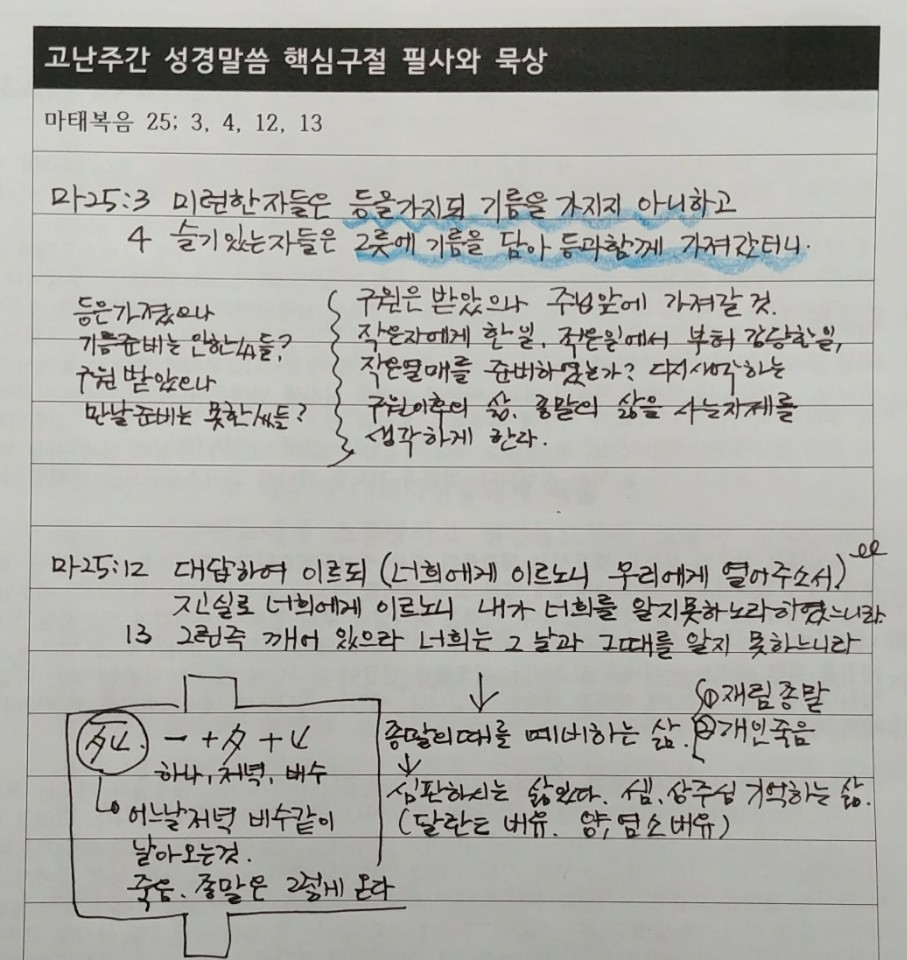 고난주간 성경말씀 핵심구절 필사와 묵상
마태복음 25; 3, 4, 12, 13
마25:3 미련한자들은 등을가지되 기름을 가지지 아니하고
4 슬기있는자들은 그릇에 기름을 담아 등과함께 가져갔더니.
등은가졌으나
기름준비는 안한 자들?
구원 받았으나
만날준비는 못한 자들?
구원은 받았으나 주님앞에 가져갈 것.
작은자에게 한 일, 작은일에서 부터 감당한일,
작은열매를 준비하였는가? 다시생각하는
구원이후의 삶, 종말의 삶을 사는자세를
생각하게 한다.
마25:12 대답하여 이르되 (너희에게 이르노니 우리에게 열어주소서)
진실로 너희에게 이르노니 내가 너희를 알지못하노라 하였느니라.
13 그런즉 깨어 있으라 너희는 그 날과 그때를 알지 못하느니라
↓
종말의때를 예비하는 삶.
① 재림종말
② 개인죽음
↓
심판하시는 삶있다. 셈, 상주심 기억하는 삶.
(달란트 비유. 양,염소비유)
死. 一 + 夕 + 匕
하나, 저녁, 비수
어느날저녁 비수같이
날아오는것.
죽음. 종말은 그렇게 온다